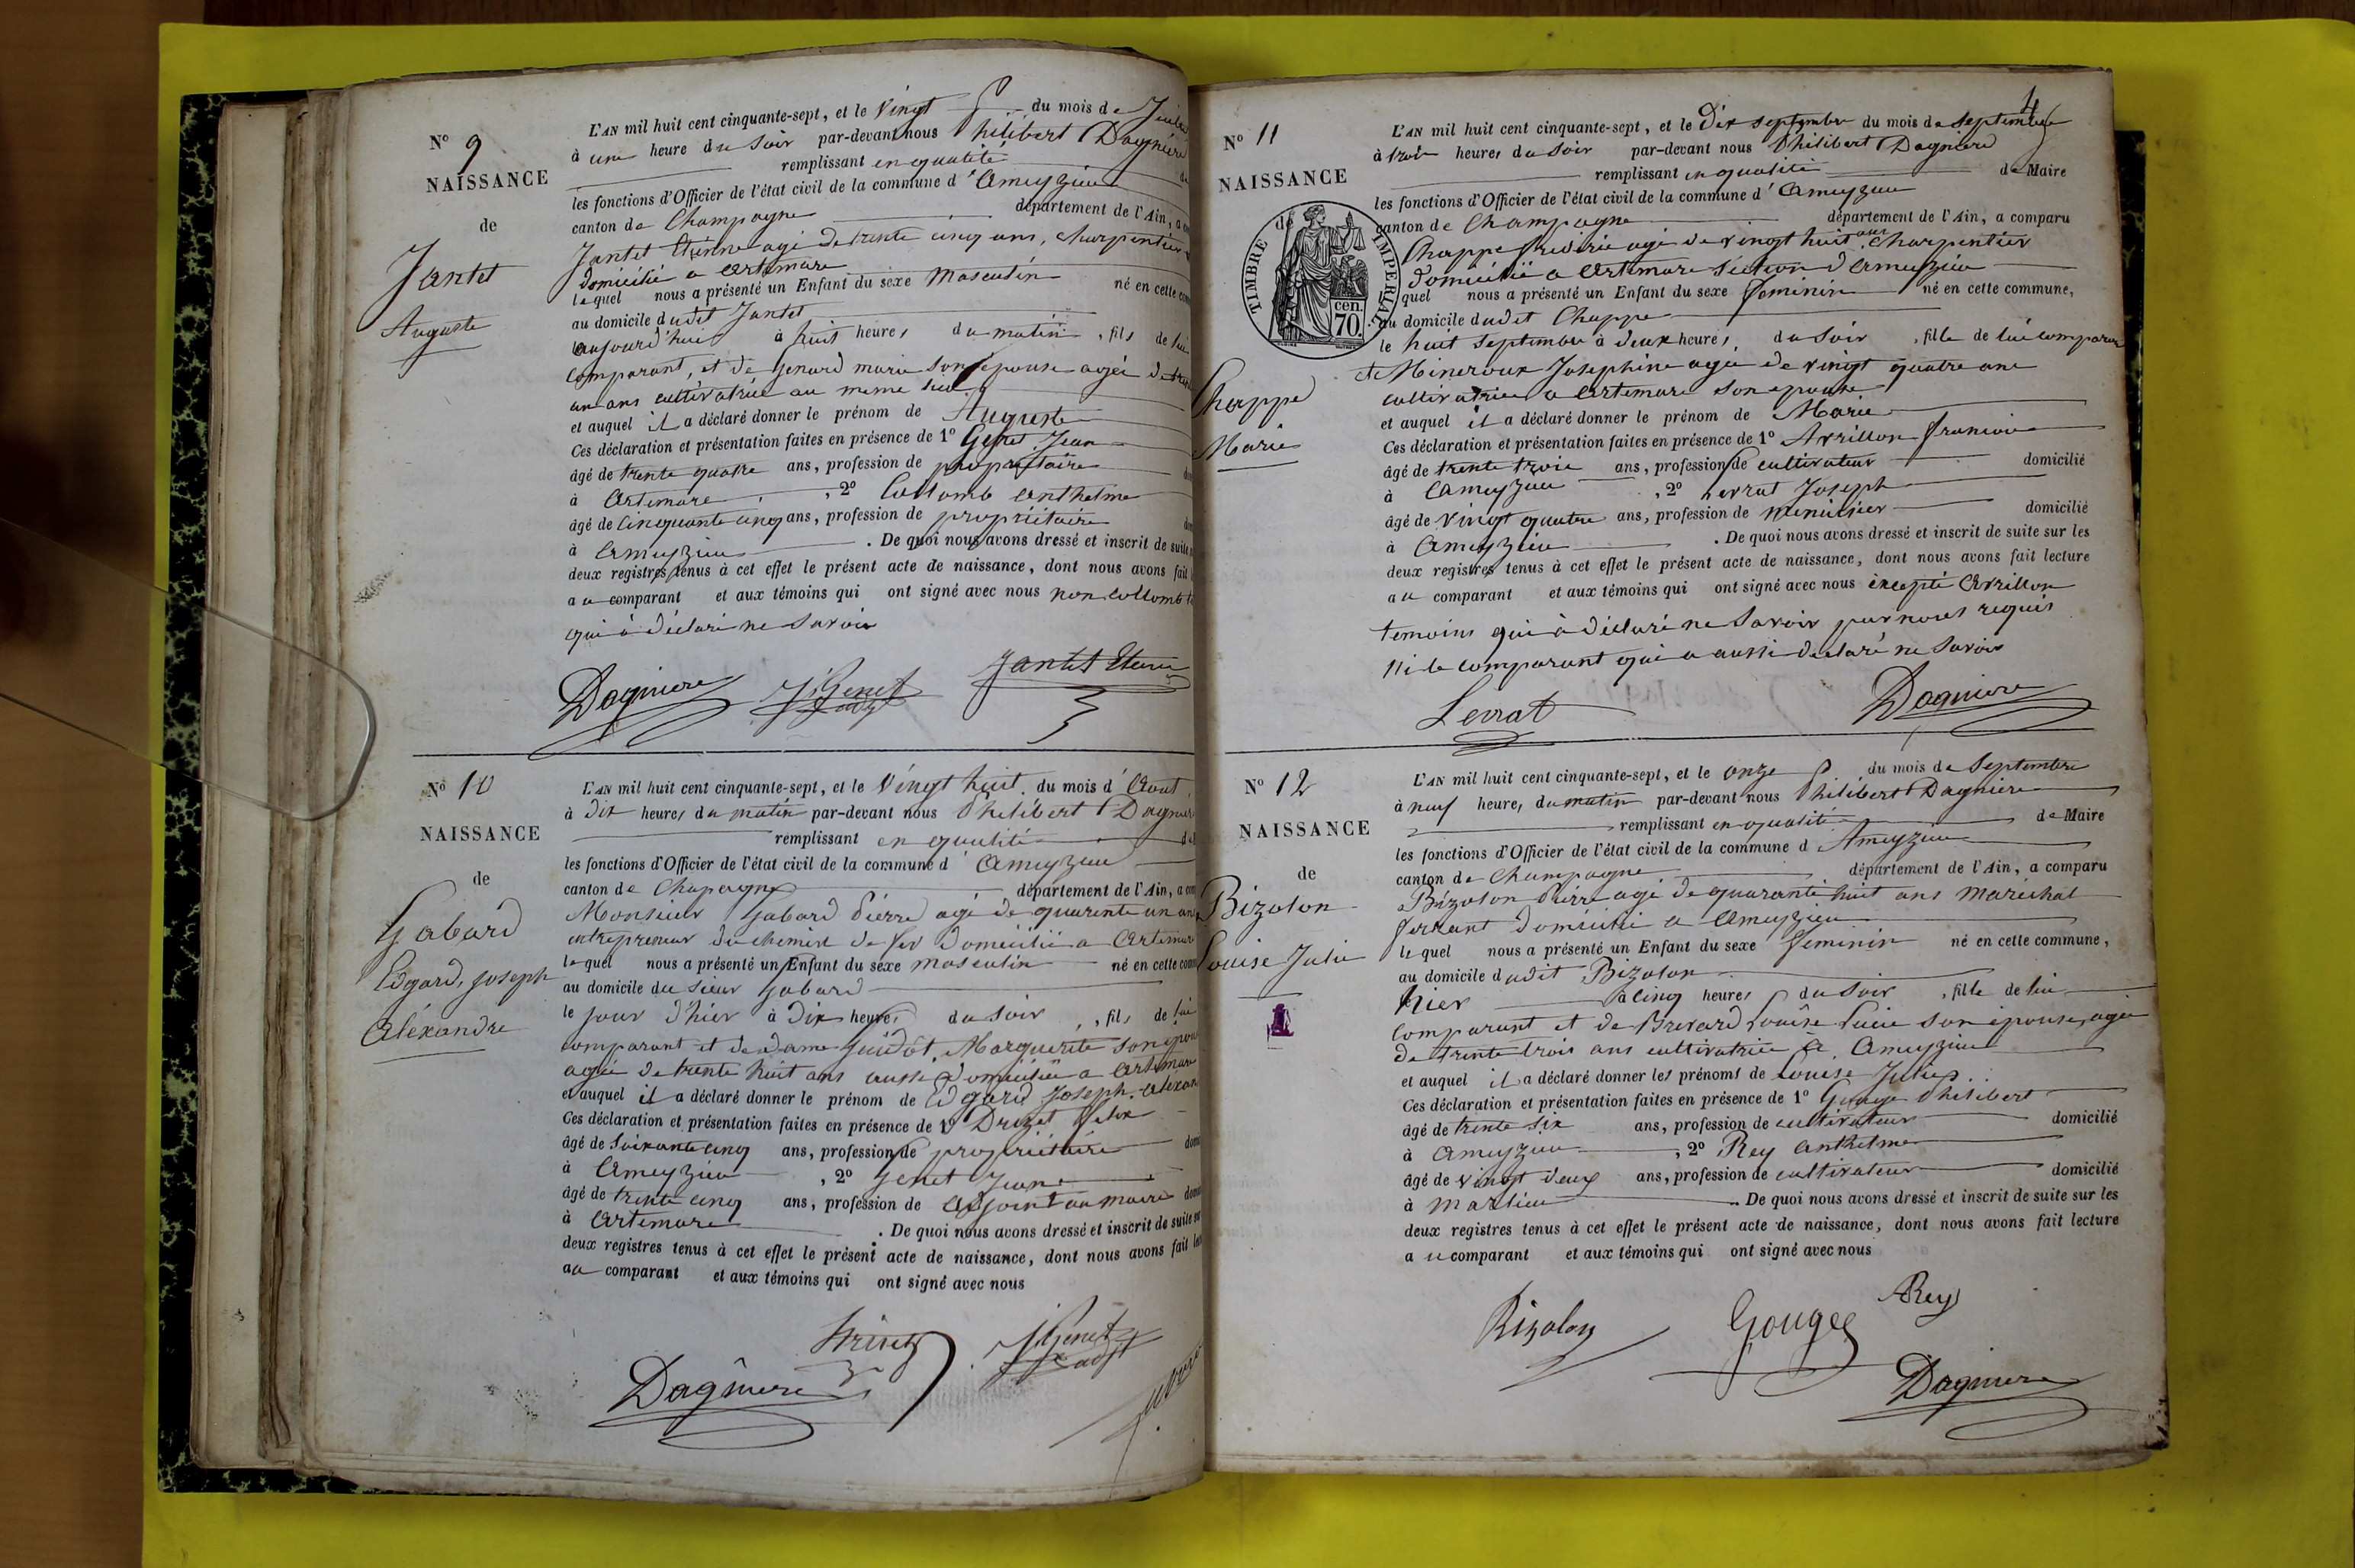 N° 9
NAISSANCE
de
Jantet
Auguste
L'AN mil huit cent cinquante-sept, et le vingt du mois de
à une heure du soir par-devant nous Philibert Dagnière
remplissant en qualité
les fonctions d'Officier de l'état civil de la commune d'Ameyzieu
canton de Champagne département de l'Ain, a
Jantet Etienne agé de trente cinq ans, charpentier
domicilié a Artemare
lequel nous a présenté un Enfant du sexe masculin né en cette
au domicile dudit Jantet
aujourd'hui à huit heures du matin, fils de lui
comparant, et de Genard marie son épouse agée de
un ans cultivatrice au meme lieu
et auquel il a déclaré donner le prénom de Auguste
Ces déclaration et présentation faites en présence de 1° Genet Jean
âgé de trente quatre ans, profession de propriétaire
à Artemare, 2° Collomb Anthelme
âgé de cinquante cinq ans, profession de propriétaire
à Ameyzieu. De quoi nous avons dressé et inscrit de suite
deux registres tenus à cet effet le présent acte de naissance, dont nous avons fait
au comparant et aux témoins qui ont signé avec nous non Collomb
qui à déclaré ne savoir
Dagniere JGenet adjt Jantet Etienne
N° 10
NAISSANCE
de
Gabard
Edgard, Joseph
Aléxandre
L'AN mil huit cent cinquante-sept, et le vingt huit du mois d'Aout
à dix heures du matin par-devant nous Philibert
remplissant en qualité
les fonctions d'Officier de l'état civil de la commune d'Ameyzieu
canton de Chapagne département de l'Ain, a
Monsieur Gabard Pierre agé de quarente un ans
entrepreneur du chemin de fer domicilié a Artemare
lequel nous a présenté un Enfant du sexe masculin né en cette
au domicile du sieur Gabard
le jour d'hier à dix heures du soir, fils de lui
comparant et de dame Guidot, Marguerite son
agée de trente huit ans aussi domiciliée a Artemare
et auquel il a déclaré donner le prénom de Edgard Joseph
Ces déclaration et présentation faites en présence de 1° Drizet Felix
âgé de soixante cinq ans, profession de propriétaire
à Ameyzieu, 2° Genet Jean
âgé de trente cinq ans, profession de Adjoint au maire
à Artemare. De quoi nous avons dressé et inscrit de suite
deux registres tenus à cet effet le présent acte de naissance, dont nous avons fait
au comparant et aux témoins qui ont signé avec nous
Dagniere JGenet adjt
4
N° 11
NAISSANCE
de
TIMBRE IMPERIAL
cen. 70.
Chappe
Marie
L'AN mil huit cent cinquante-sept, et le dix septembre du mois de septembre
à trois heures du soir par-devant nous Philibert Dagnière
remplissant en qualité de Maire
les fonctions d'Officier de l'état civil de la commune d'Ameyzieu
canton de Champagne département de l'Ain, a comparu
Chappe frederic agé de vingt huit ans charpentier
domicilié a Artemare section d'Ameyzieu
quel nous a présenté un Enfant du sexe feminin né en cette commune,
au domicile dudit Chappe
le huit septembre à deux heures, du soir, fille de lui comparant
et Mineroux Josephine agée de vingt quatre ans
cultivatrice a Artemare son épouse
et auquel il a déclaré donner le prénom de Marie
Ces déclaration et présentation faites en présence de 1° Avrillon francois
âgé de trente trois ans, profession de cultivateur domicilié
à Ameyzieu, 2° Serrat Joseph
âgé de vingt quatre ans, profession de menuisier domicilié
à Ameyzieu. De quoi nous avons dressé et inscrit de suite sur les
deux registres tenus à cet effet le présent acte de naissance, dont nous avons fait lecture
au comparant et aux témoins qui ont signé avec nous excepté Avrillon
temoins qui à déclaré ne savoir par nous requis
ni le comparant qui a aussi declaré ne savoir
Serrat Dagniere
N° 12
NAISSANCE
de
Bizolon
Louise Julie
L'AN mil huit cent cinquante-sept, et le onze du mois de septembre
à neuf heures du matin par-devant nous Philibert Dagnière
remplissant en qualité de Maire
les fonctions d'Officier de l'état civil de la commune d Ameyzieu
canton de Champagne département de l'Ain, a comparu
Bizolon Pierre agé de quarante huit ans maréchal
ferrant domicilié a Ameyzieu
lequel nous a présenté un Enfant du sexe feminin né en cette commune,
au domicile dudit Bizolon
hier à cinq heures du soir, fille de lui
comparant et de Brevard Louise Lucie son épouse, agée
de trente trois ans cultivatrice à Ameyzieu
et auquel il a déclaré donner les prénoms de Louise Julie
Ces déclaration et présentation faites en présence de 1° Gouge Philibert
âgé de trente six ans, profession de cultivateur domicilié
à Ameyzieu, 2° Rey Anthelme
âgé de vingt deux ans, profession de cultivateur domicilié
à Marlieu. De quoi nous avons dressé et inscrit de suite sur les
deux registres tenus à cet effet le présent acte de naissance, dont nous avons fait lecture
au comparant et aux témoins qui ont signé avec nous
Bizolon Gouge ARey
Dagniere